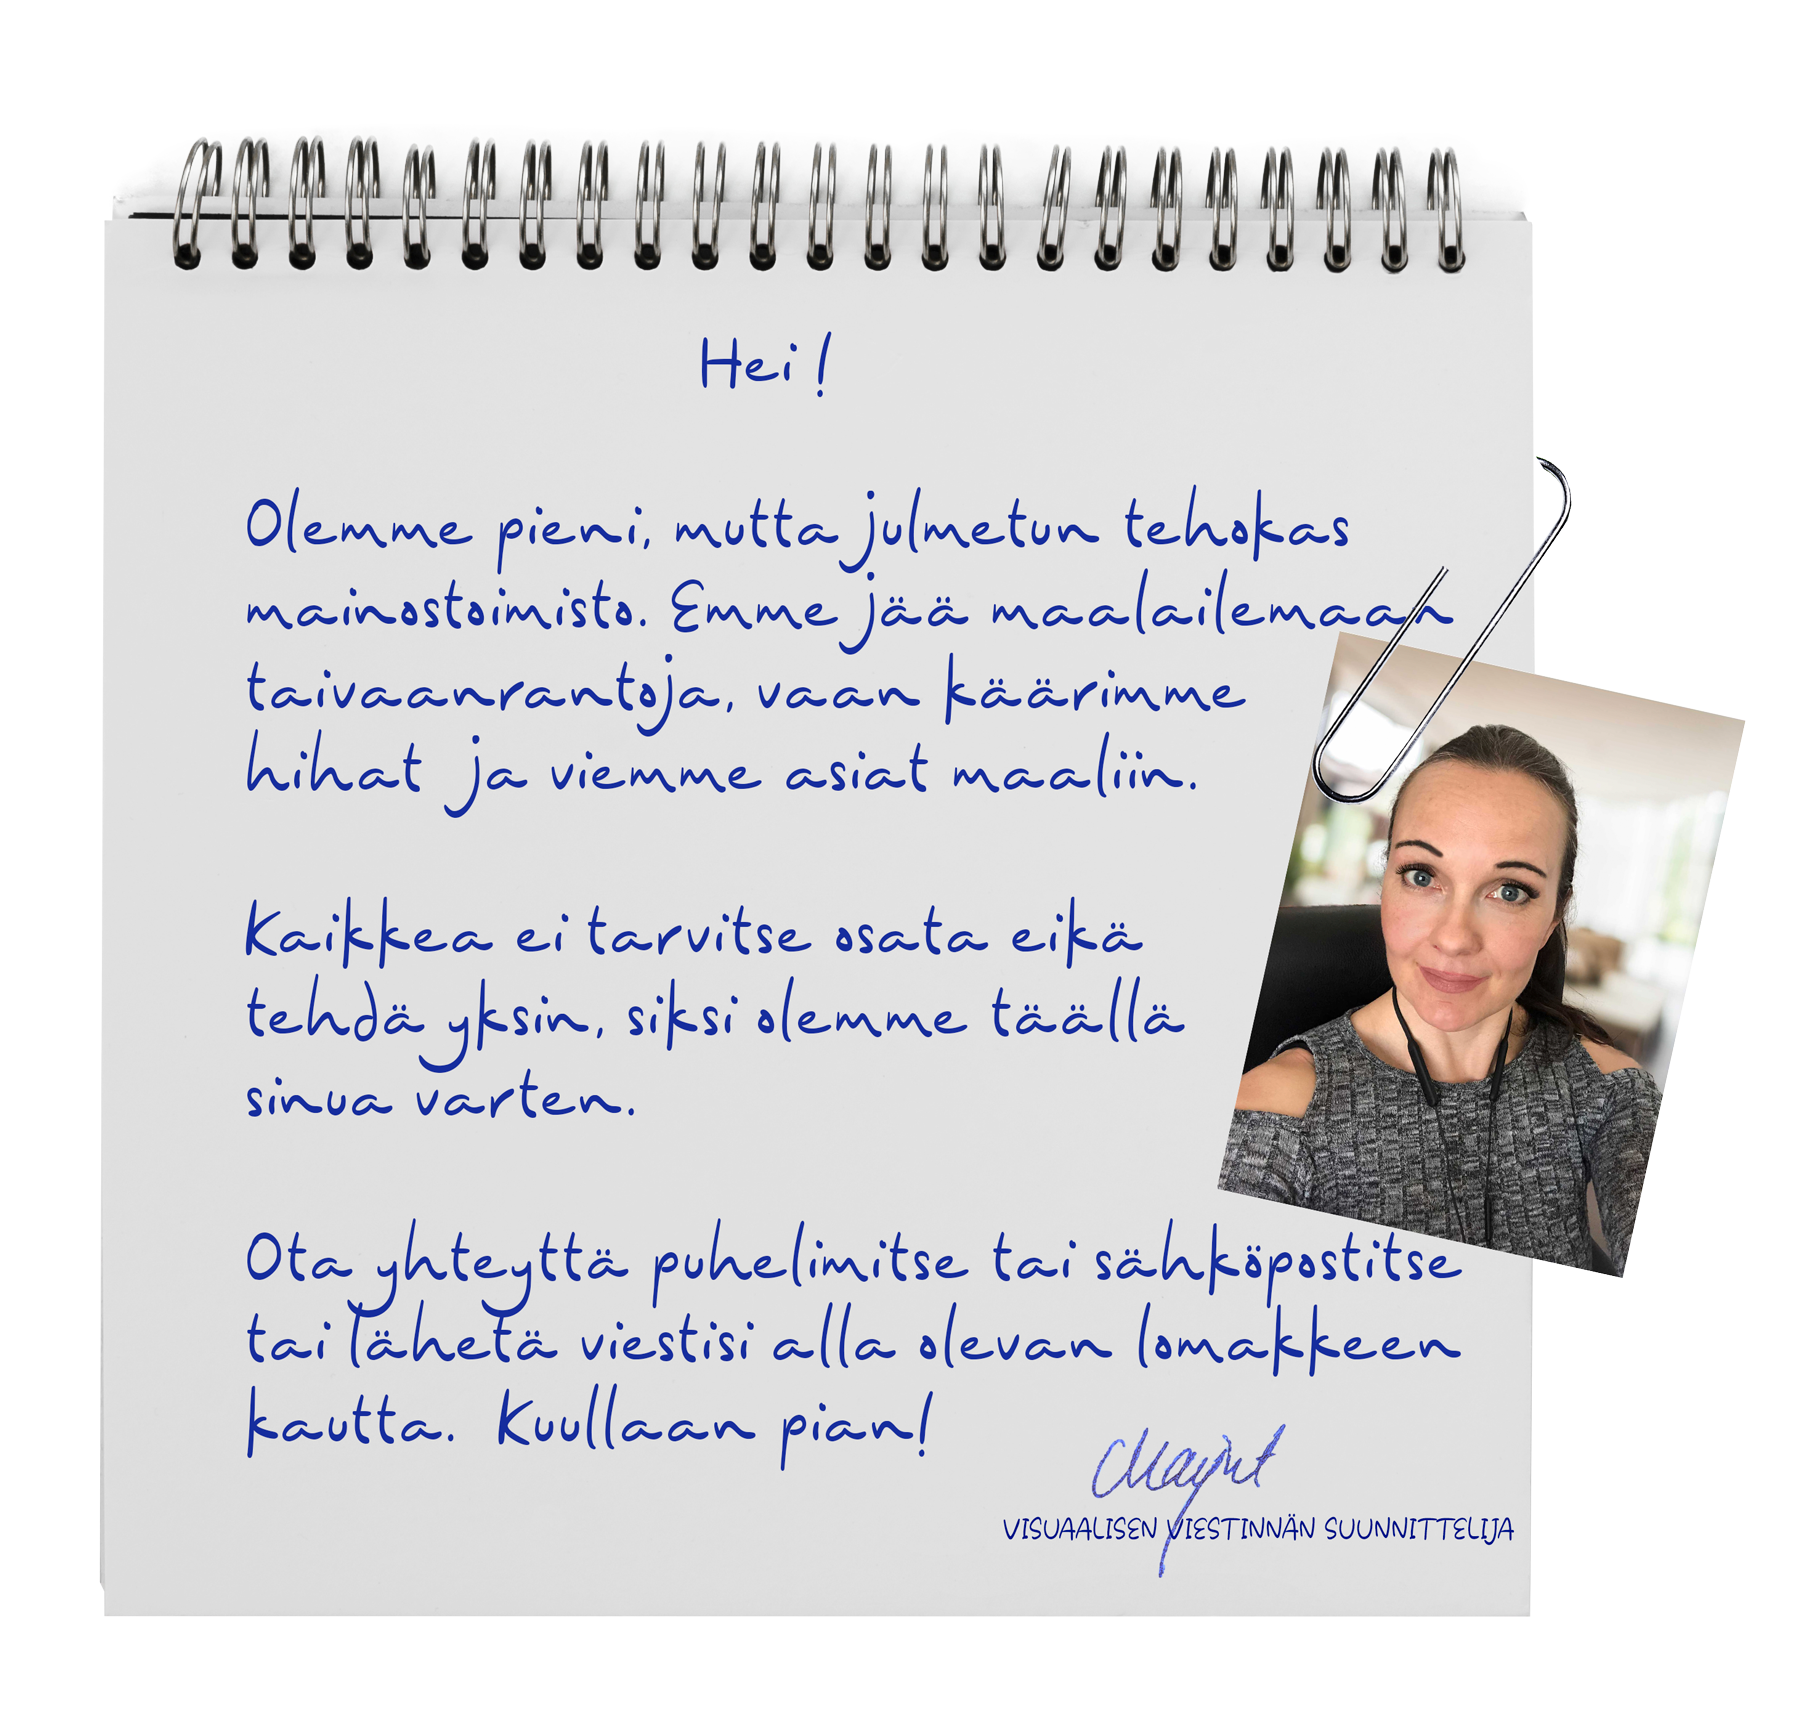 Hei!
Olemme pieni, mutta julmetun tehokas
mainostoimisto. Emme jää maalailemaan
taivaanrantoja, vaan käärimme
hihat ja viemme asiat maaliin.
Kaikkea ei tarvitse osata eikä
tehdä yksin, siksi olemme täällä
sinua varten.
Ota yhteyttä puhelimitse tai sähköpostitse
tai lähetä viestisi alla olevan lomakkeen
kautta. Kuullaan pian!
VISUAALISEN VIESTINNÄN SUUNNITTELIJA